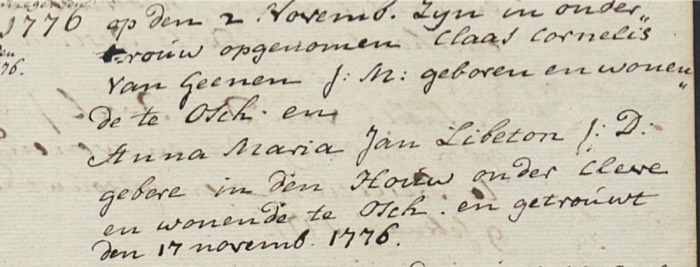 1776 op den 2 Novemb. Zyn in onder„
trouw opgenomen Claas Cornelis
76. van Geenen J: M: geboren en wonen„
de te Osch. en
Anna Maria Jan Libeton J: D:
gebore in den Houw onder Cleve
en wonende te Osch. en getrouwt
den 17 novemb. 1776.